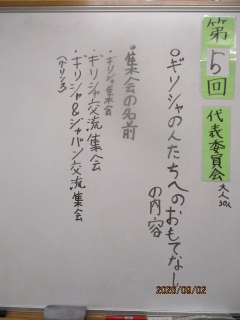 第5回
代表委員会
大人3以
○ギリシャの人たちへのおもてなし
の内容
・集会の名前
・ギリシャ集会
・ギリシャ交流集会
・ギリシャ&ジャパン交流集会
2026/09/02